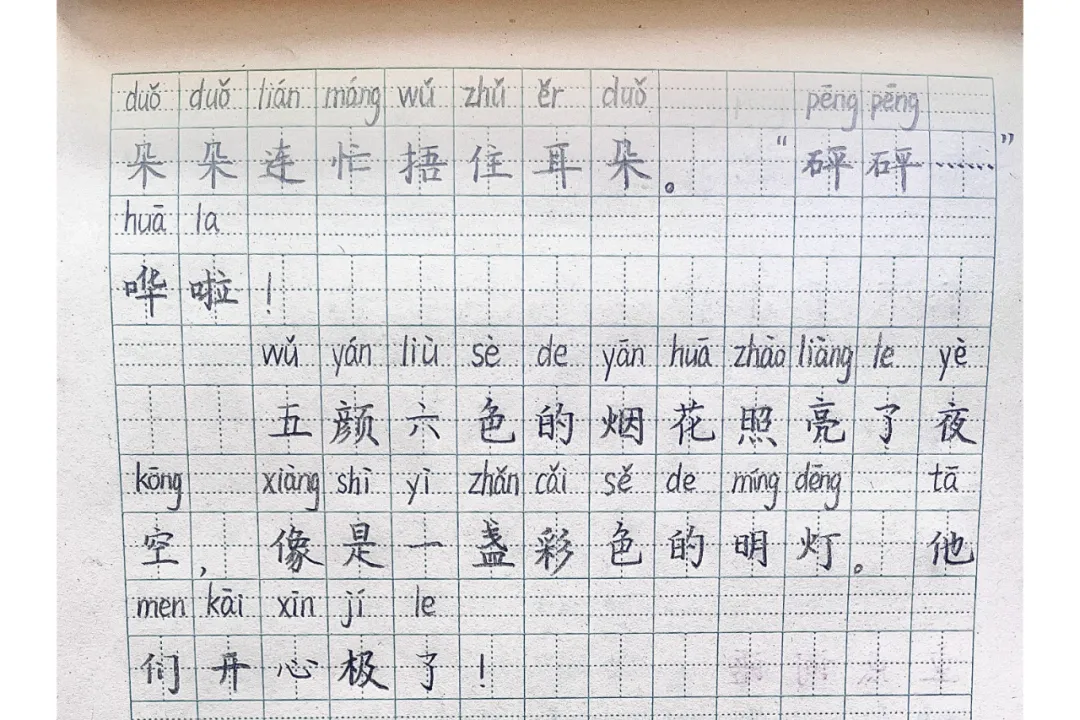 duǒ duǒ lián máng wǔ zhǔ ěr duǒ pēng pēng
朵朵连忙捂住耳朵。“砰砰……”
huā la
哗啦!
wǔ yán liù sè de yān huā zhào liàng le yè
五颜六色的烟花照亮了夜
kōng xiàng shī yì zhǎn cǎi sě de míng dēng tā
空,像是一盏彩色的明灯。他
men kāi xīn jí le
们开心极了!